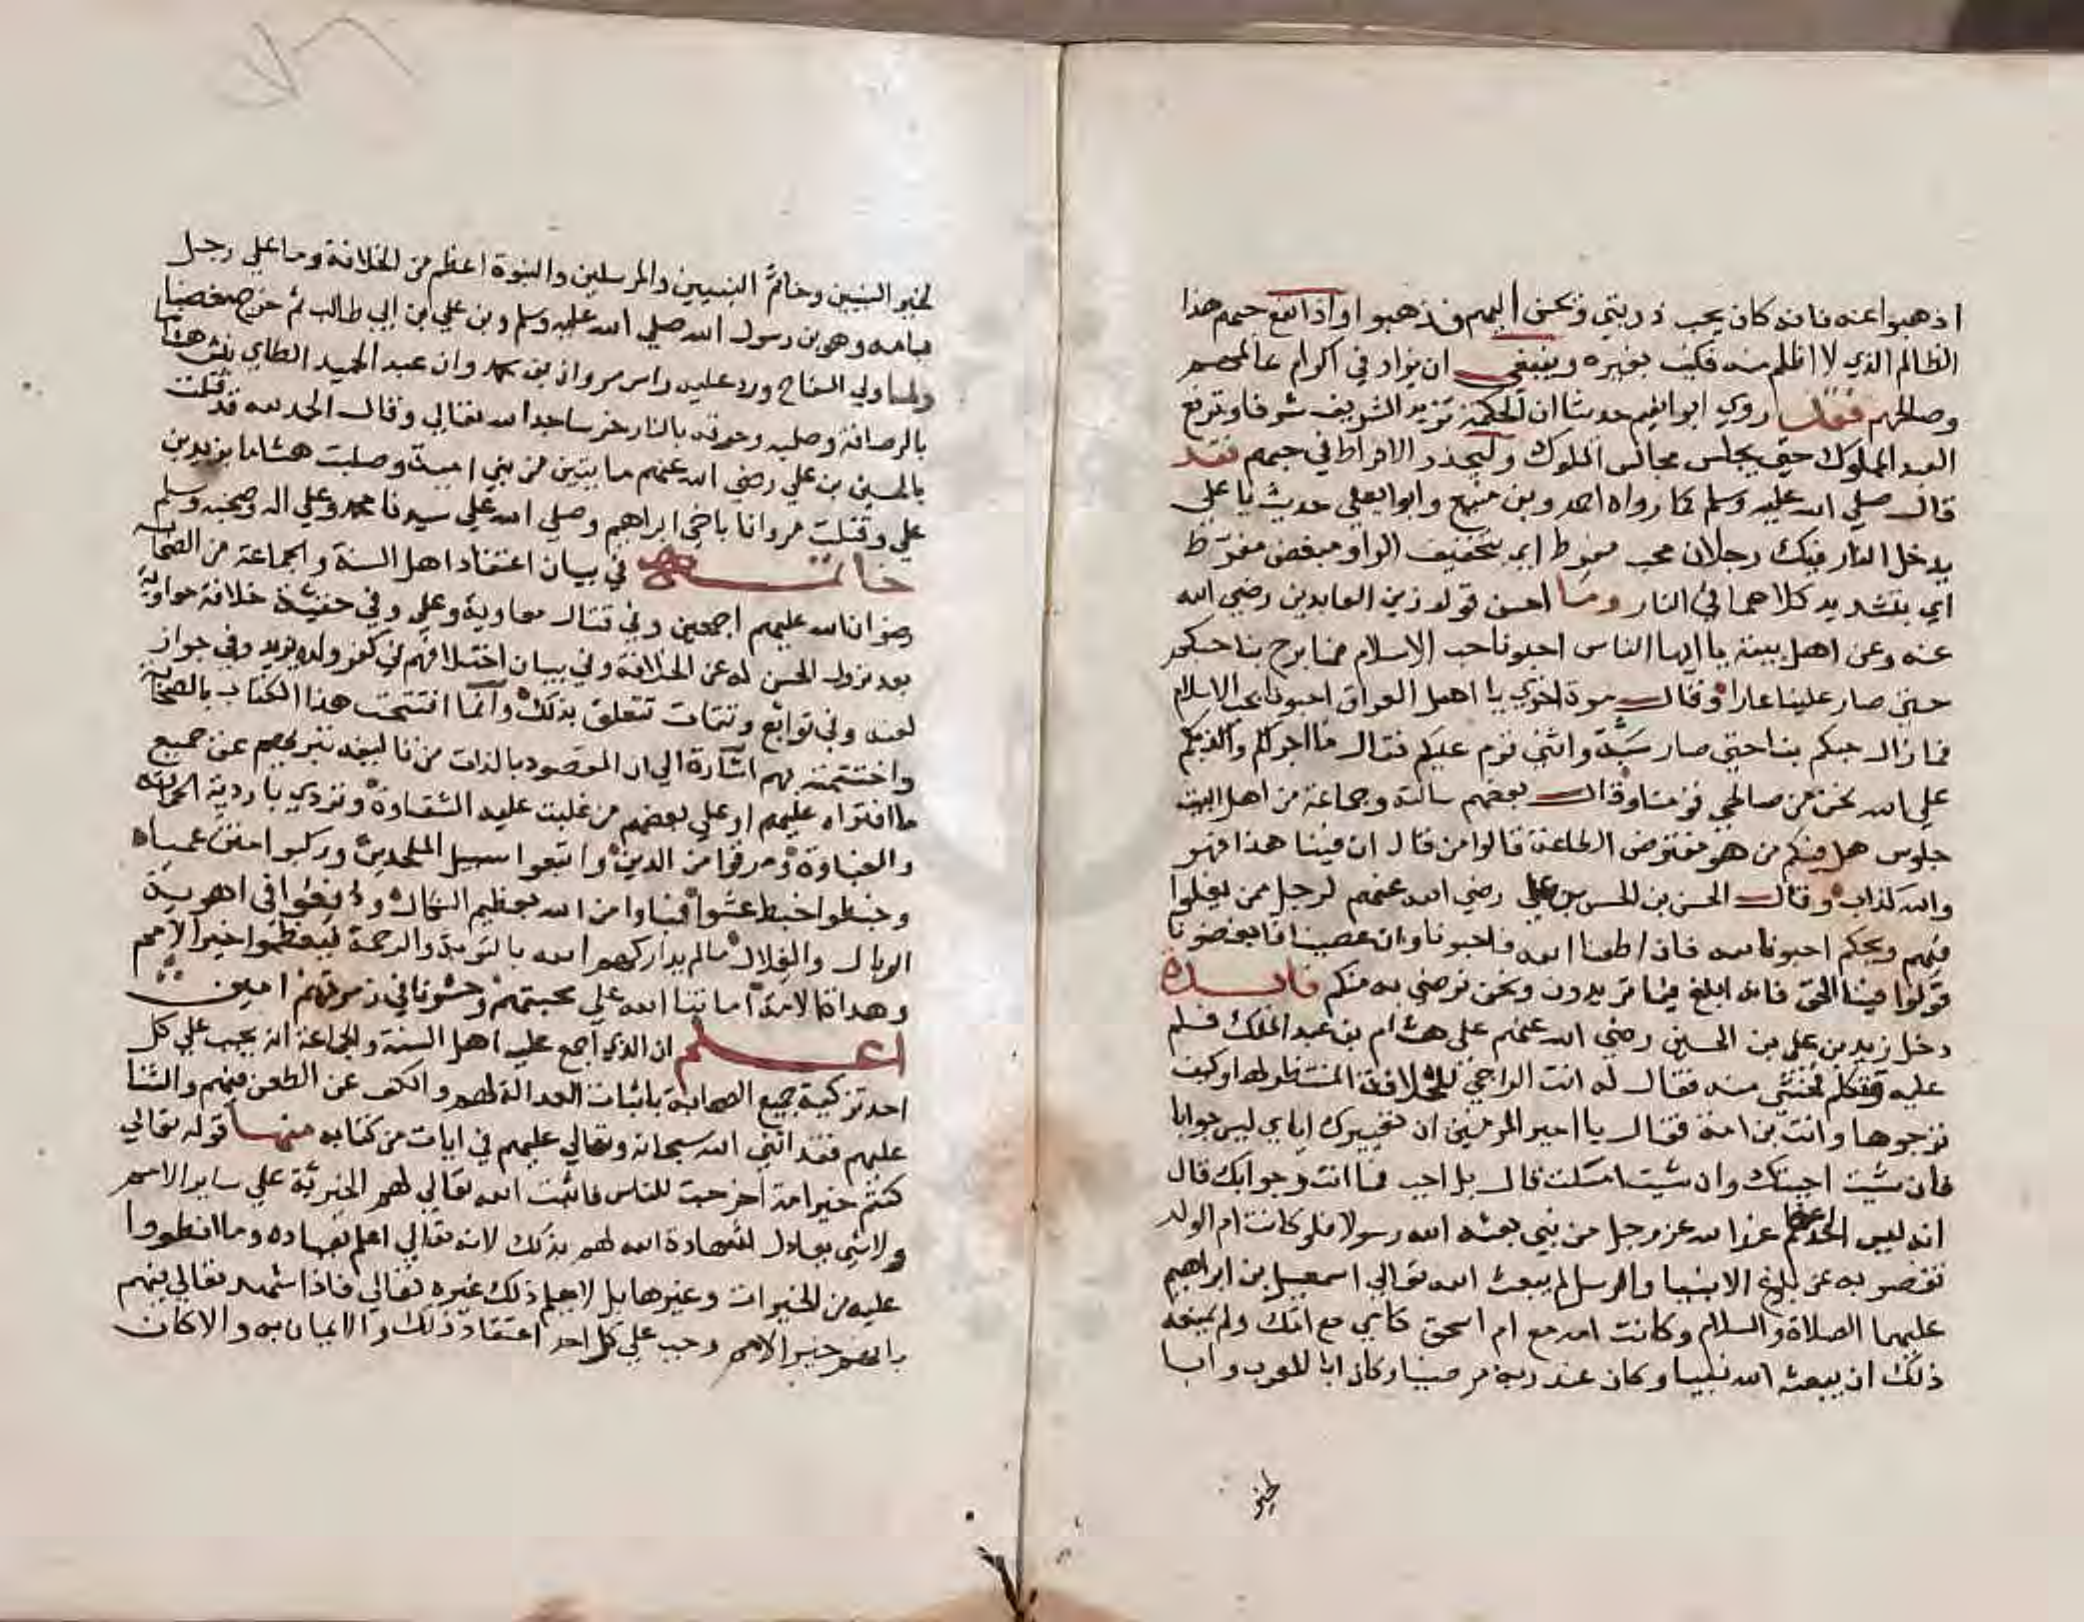 اذهبوا عنه فانه كان يحب ذريتي ونحن اليهم فذهبوا واذا نفع حبهم هذا
الظالم الذي لا اظلم منه فكيف بغيره وينبغي ان يزاد في اكرام عالمهم
وصالحهم فقد روي ابو انعيم حديثا ان الحكمة تزيد الشريف شرفا وترفع
العبد المملوك حتى يجلس مجالس الملوك وليحذر الافراط في حبهم فقد
قال صلي الله عليه وسلم كما رواه احمد وبن منيع وابو ايعلي حديث يا علي
يدخل النار فيك رجلان محب مفرط اي بتخفيف الرا ومبغض مفرط
اي بتشديد كلاهما في النار وما احسن قول زين العابدين رضي الله
عنه وعن اهل بيته يا ايها الناس احبونا حب الاسلام فما برح بنا حبكم
حتى صار علينا عارا وقال مرة اخري يا اهل العراق احبونا بحب الاسلام
فما زال حبكم بنا حتي صار سبة واثني قوم عليه فقال ما اجراكم واكذبكم
علي الله نحن من صالحي قومنا وقال بعضهم سالته وجماعة من اهل البيت
جلوس هل فيكم من هو مفترض الطاعة قالوا من قال ان فينا هذا فهو
والله كذاب وقال الحسن بن الحسن بن علي رضي الله عنهم لرجل ممن يغلوا
فيهم ويحكم احبونا لله فان اطعنا الله فاحبونا وان عصينا فابغضونا
قولوا فينا الحق فانه ابلغ فيما تريدون ونحن نرضي به منكم فائدة
دخل زيد بن علي بن الحسين رضي الله عنهم علي هشام بن عبد الملك فسلم
عليه وتكلم فخشي منه فقال له انت الراجي للخلافة المنتظر لها وكيف
ترجوها وانت بن امة فقال يا امير المومنين ان تعييرك اياي ليس جوابا
فان شيت اجبتك وان شيت امسكت قال بل اجب فما انت وجوابك قال
انه ليس احد اعظم عند الله عز وجل من نبي بعثه الله رسولا فلو كانت ام الولد
تقصر به عن بلوغ الانبيا والرسل لم يبعث الله تعالي اسمعيل بن ابراهيم
عليهما الصلاة والسلام وكانت امه مع ام اسحق كامي مع امك ولم يمنعه
ذلك ان يبعثه الله نبيا وكان عند ربه مرضيا وكان ابا للعرب وابا
لخير
لخير النبيين وخاتم النبيين والمرسلين والنبوة اعظم من الخلافة وما علي رجل
بامه وهو بن رسول الله صلي الله عليه وسلم وبن علي بن ابي طالب ثم خرج مغضبا
ولما ولي السفاح ورد عليه راس مروان بن محمد وان عبد الحميد الطاي نبش هشاما
بالرصافة وصلبه وحرقه بالنار خر ساجدا لله تعالي وقال الحمد لله قد قتلت
بالحسين بن علي رضي الله عنهم مايتين من بني امية وصلبت هشاما بزيد بن
علي وقتلت مروانا باخي ابراهيم وصلي الله علي سيدنا محمد وعلي اله وصحبه وسلم
خاتمة في بيان اعتقاد اهل السنة والجماعة من الصحابه
رضوان الله عليهم اجمعين وفي قتال معاوية وعلي وفي حقيقة خلافة معاوية
بعد نزول الحسن له عن الخلافة وفي بيان اختلافهم في كفر ولده يزيد وفي جواز
لعنه وفي توابع وتتمات تتعلق بذلك وانما افتتحت هذا الكتاب بالصحابة
واختتمته بهم اشارة الي ان المقصود بالذات من تاليفه تبريهم عن جميع
ما افتراه عليهم او علي بعضهم من غلبت عليه الشقاوة وتردي باردية الحماقه
والغباوة ومرقوا من الدين واتبعوا سبيل الملحدين وركبوا متن عمياه
وخبطوا خبط عشوا فباوا من الله بعظيم النكال ووقعوا في اهوية
الوبال والضلال مالم يداركهم الله بالتوبة والرحمة ليعظموا خير الامم
وهذه الامة اماتنا الله علي محبتهم وحشرنا في زمرتهم امين
اعلم ان الذي اجمع عليه اهل السنة والجماعة انه يجب علي كل
احد تزكية جميع الصحابة باثبات العدالة لهم والكف عن الطعن فيهم والثنا
عليهم فقد اثني الله سبحانه وتعالي عليهم في ايات من كتابه منها قوله تعالي
كنتم خير امة اخرجت للناس فاثبت الله تعالي لهم الخيرية علي ساير الامم
ولا شي يعادل لشهادة الله لهم بذلك لانه تعالي اعلم بعباده وما انطووا
عليه من الخيرات وغيرها بل لا يعلم ذلك غيره تعالي فاذا شهد تعالي فيهم
بانهم خير الامم وجب علي كل احد اعتقاد ذلك والايمان به والا كان